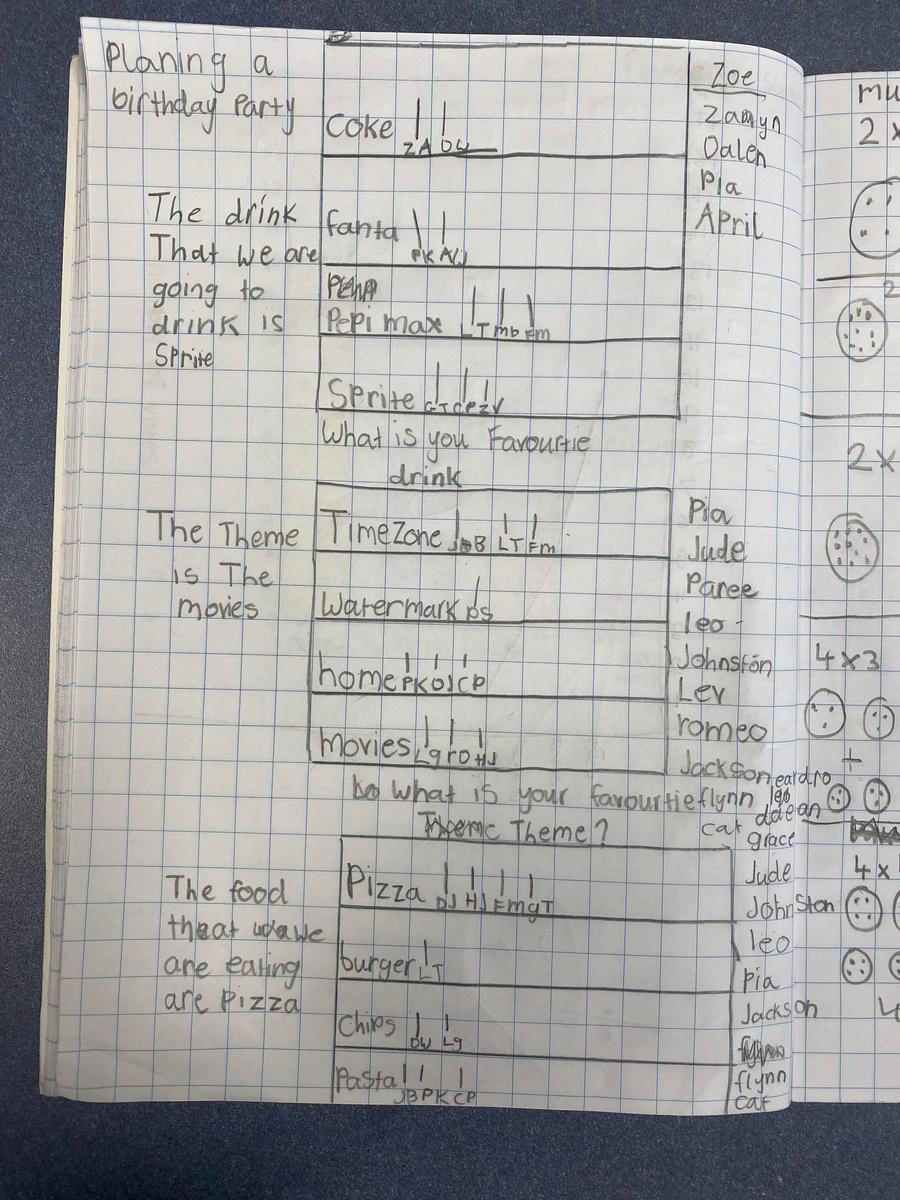 Planing a
birthday Party
Coke
ZA DW
fanta
PK AW
Pepi max
LT mb Fm
Sprite
GT CP ZV
What is you Favourtie
drink
The drink
That we are
going to
drink is
Sprite
Zoe
Zamyn
Dalen
Pia
April
The Theme
is The
movies
TimeZone
JDB LT Fm
Watermark
ps
home
PK OJ CP
movies
Lg ro HJ
What is your favourtie
Theme?
Pia
Jude
Paree
leo
Johnston
Lev
romeo
Jackson
flynn
cat
grace
The food
that we
are eating
are Pizza
Pizza
DJ HJ Fm gT
burger
LT
Chips
DW Lg
Pasta
JB PK CP
Jude
Johnston
leo
Pia
Jackson
flynn
cat
mu
2 x
2
2 x
4 x 3
+
4 x